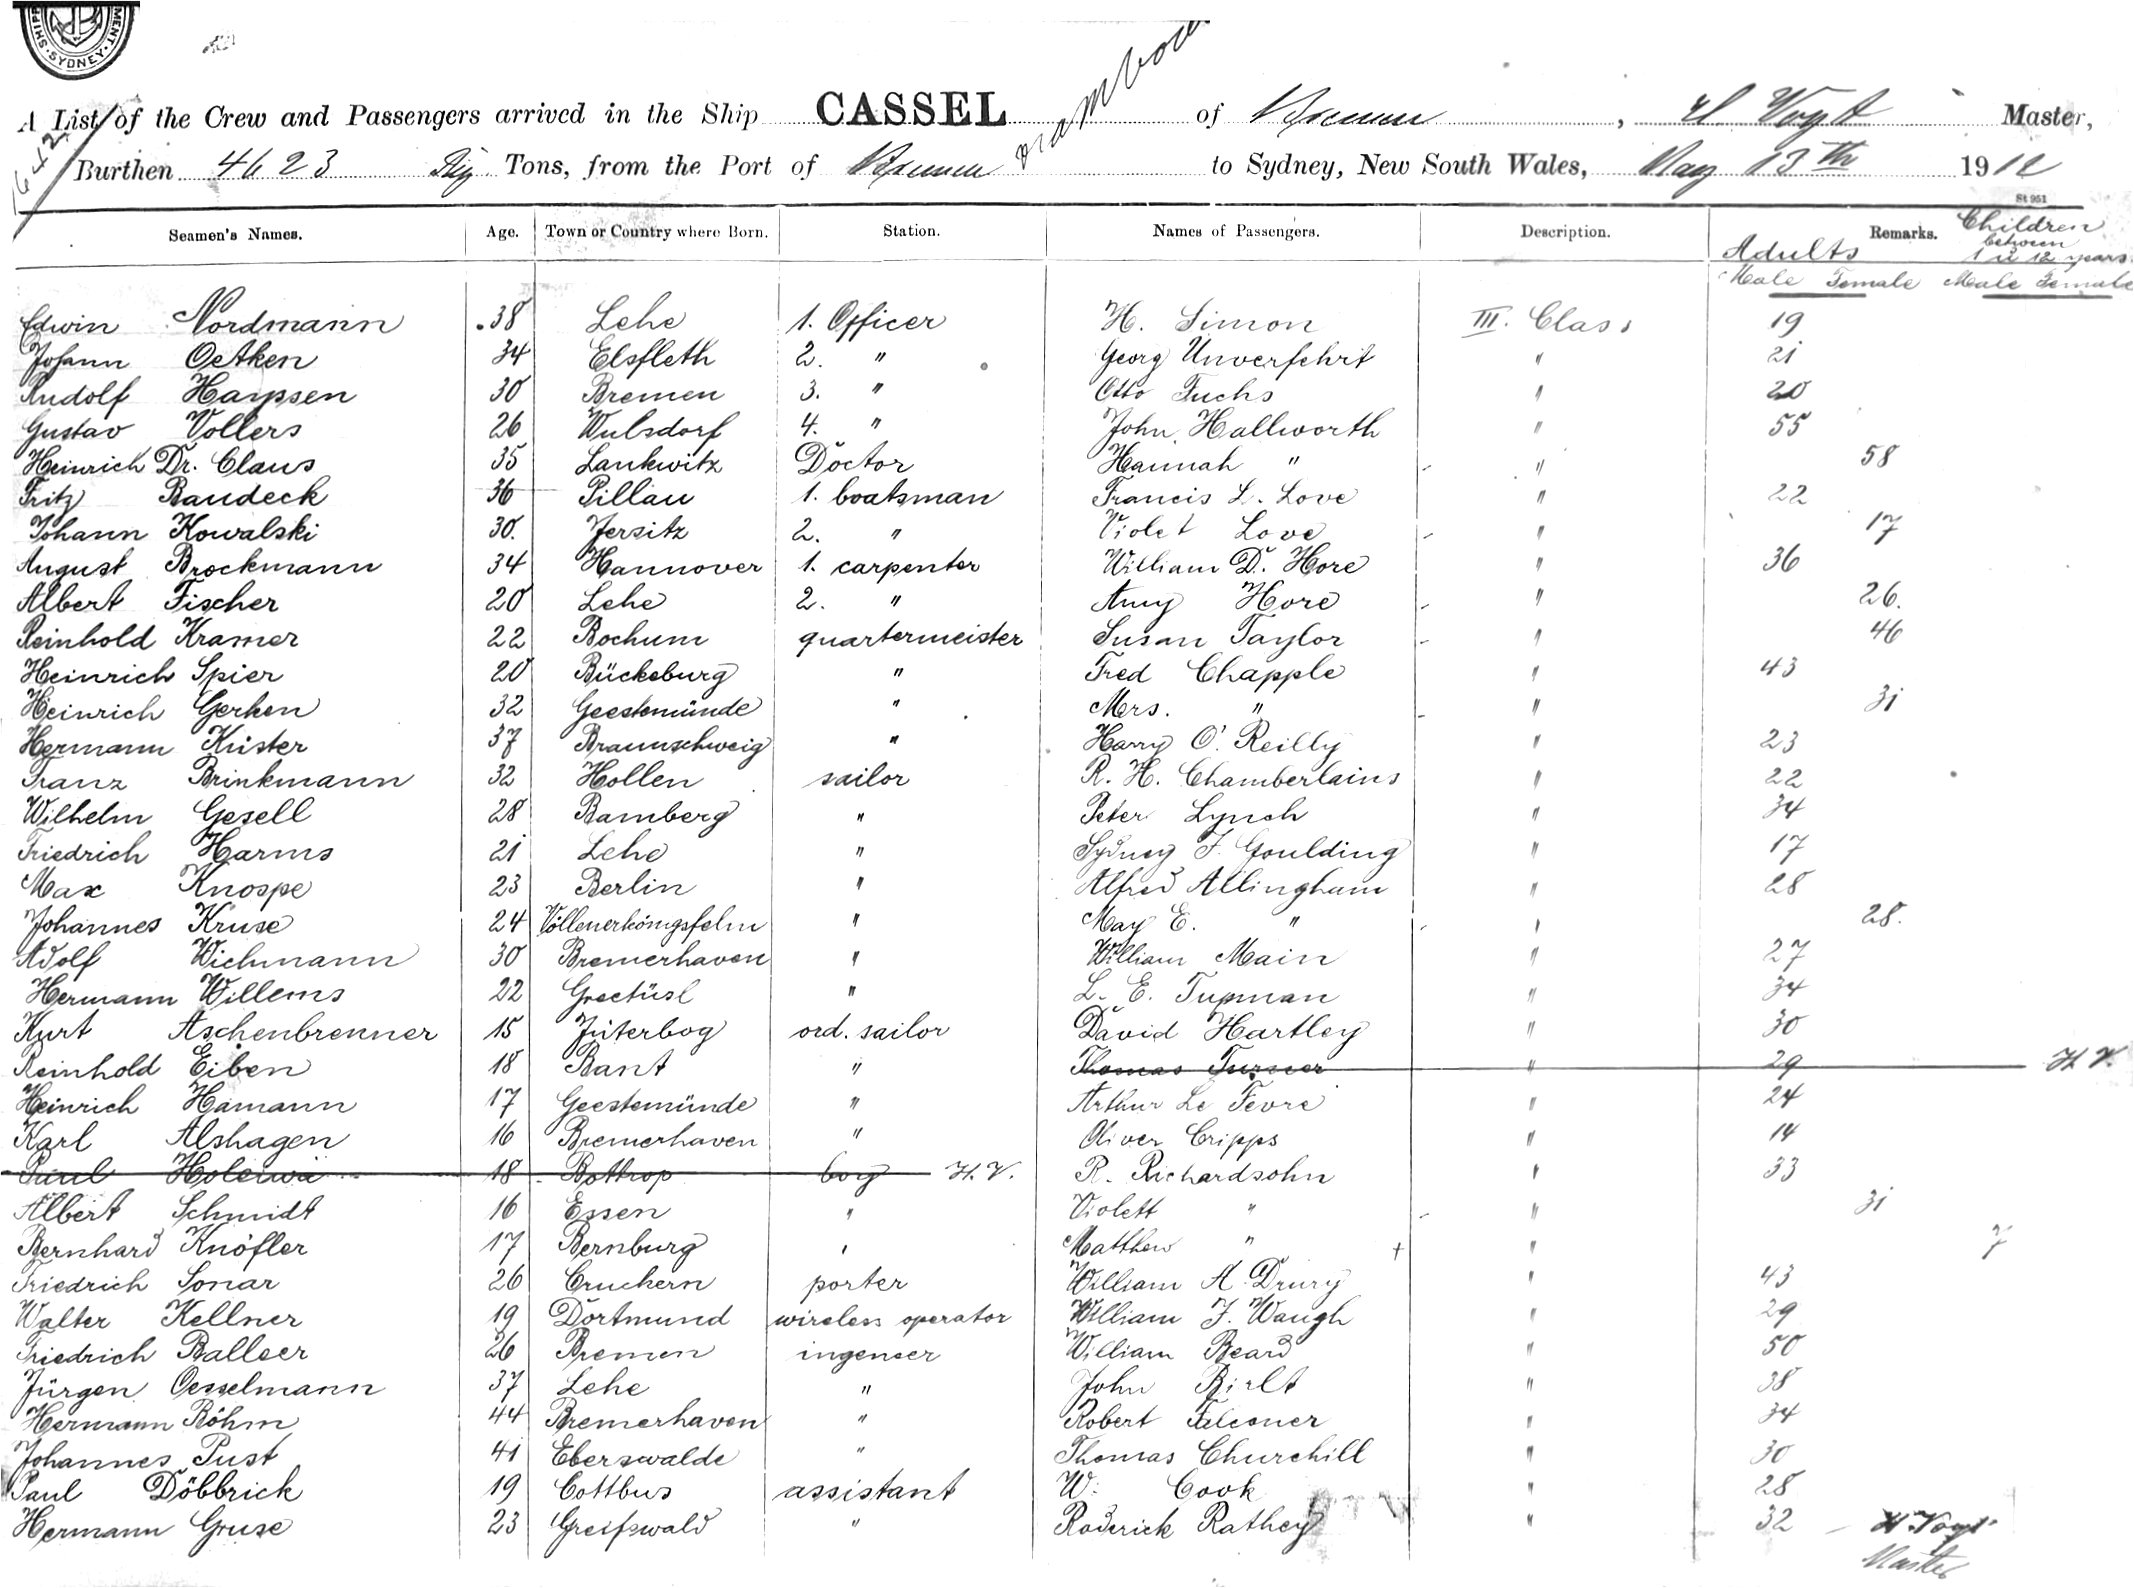 SHIP MENT. SYDNEY
A List of the Crew and Passengers arrived in the Ship CASSEL of Bremen, H. Vogt Master,
Burthen 4623 Tons, from the Port of Bremen to Sydney, New South Wales, May 13th 1912
St 951
Seamen's Names. Age. Town or Country where Born. Station. Names of Passengers. Description. Remarks. Children
Adults between
1 u 12 years
Male Female Male Female
Edwin Nordmann 38 Lehe 1. Officer H. Simon III. Class 19
Johann Oetken 34 Elsfleth 2. " Georg Unverfehrt " 21
Rudolf Hayssen 30 Bremen 3. " Otto Fuchs " 20
Gustav Vollers 26 Wulsdorf 4. " John Hallworth " 55
Heinrich Dr. Claus 35 Lankwitz Doctor Hannah " " 58
Fritz Baudeck 36 Pillau 1. boatsman Francis L. Love " 22
Johann Kowalski 30. Jersitz 2. " Violet Love " 17
August Brockmann 34 Hannover 1. carpenter William D. Hore " 36
Albert Fischer 20 Lehe 2. " Amy Hore " 26.
Reinhold Kramer 22 Bochum quartermeister Susan Taylor " 46
Heinrich Spier 20 Bückeburg " Fred Chapple " 43
Heinrich Gerken 32 Geestemünde " Mrs. " " 31
Hermann Küster 37 Braunschweig " Harry O'Reilly " 23
Franz Brinkmann 32 Hollen sailor R. H. Chamberlains " 22
Wilhelm Gesell 28 Bamberg " Peter Lynch " 34
Friedrich Harms 21 Lehe " Sydney F. Goulding " 17
Max Knospe 23 Berlin " Alfred Allingham " 28
Johannes Kruse 24 " May E. " " 28.
Adolf Wichmann 30 Bremerhaven " William Main " 27
Hermann Willems 22 " L. E. Tupman " 34
Kurt Aschenbrenner 15 Jüterbog ord. sailor David Hartley " 30
Reinhold Eiben 18 Bant " Thomas Turner " 29 H. V.
Heinrich Hamann 17 Geestemünde " Arthur Le Fevre " 24
Karl Alshagen 16 Bremerhaven " Oliver Cripps " 14
Paul Holewa 18 Bottrop boy H. V. R. Richardsohn " 33
Albert Schmidt 16 Essen " Violett " " 31
Bernhard Knöfler 17 Bernburg " Matthew " + " 7
Friedrich Sonar 26 Cruchern porter William A. Drury " 43
Walter Kellner 19 Dortmund wireless operator William F. Waugh " 29
Friedrich Balleer 26 Bremen ingeneer William Beard " 50
Jürgen Oesselmann 37 Lehe " John " 38
Hermann Böhm 44 Bremerhaven " Robert Falconer " 34
Johannes Pust 41 Eberswalde " Thomas Churchill " 30
Paul Döbbrick 19 Cottbus assistant W. Cook " 28
Hermann Gruse 23 Greifswald " Roderick Rathey " 32 H. Vogt
Master